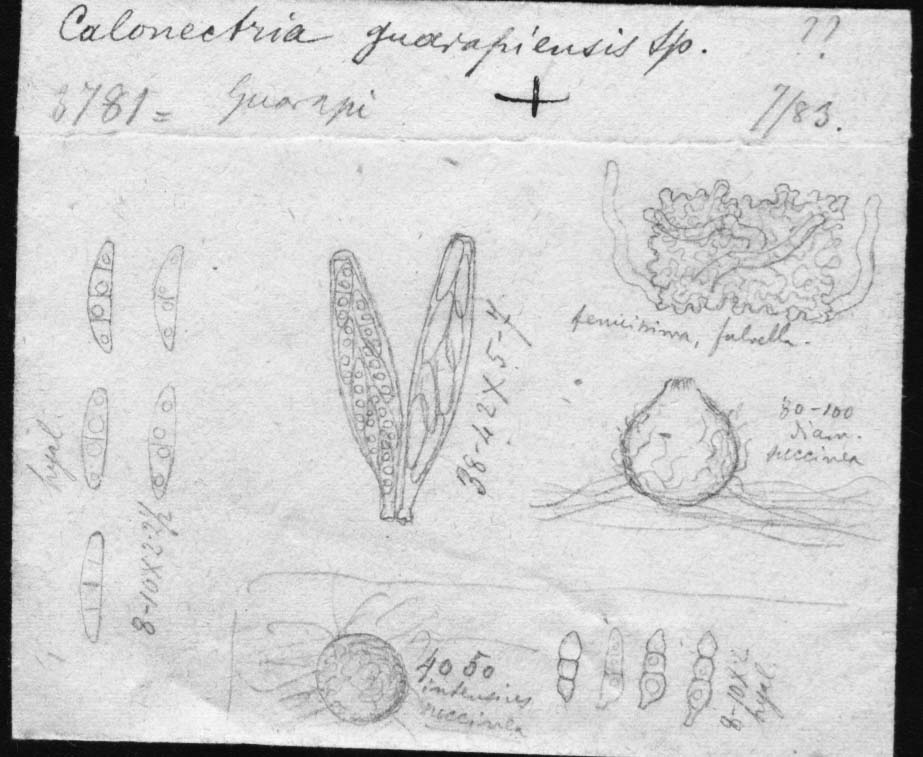 Calonectria guarapiensis Sp. ??
3781 = Guarapi + 7/83.
tenuissima, fulvella.
38-42 X 5-7
80-100
diam.
succinea
hyal.
8-10 X 2-2½
40 50
intensius
succinea
8-10 X 2
hyal.